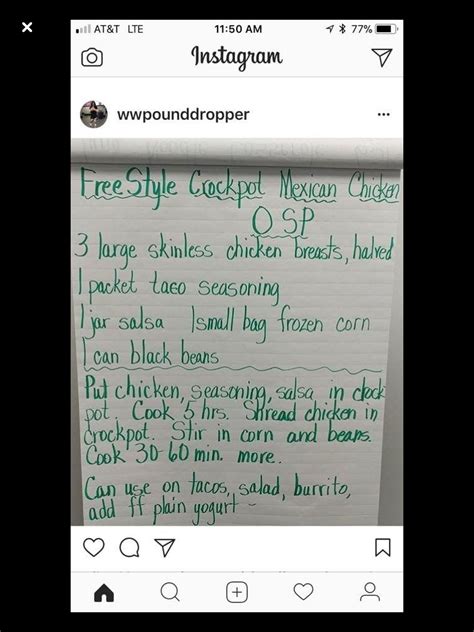 AT&T LTE 11:50 AM 77%
Instagram
wwpounddropper
FreeStyle Crockpot Mexican Chicken
0 SP
3 large skinless chicken breasts, halved
1 packet taco seasoning
1 jar salsa 1 small bag frozen corn
1 can black beans
Put chicken, seasoning, salsa in clock
pot. Cook 5 hrs. Shread chicken in
crockpot. Stir in corn and beans.
Cook 30-60 min. more.
Can use on tacos, salad, burrito,
add ff plain yogurt -